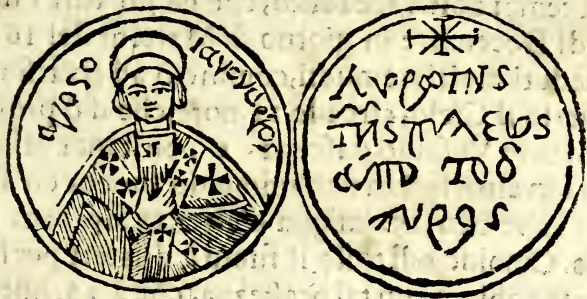 αγιοσο ιανουαριος
λυρωτης
της πλεως
από του
πυρος